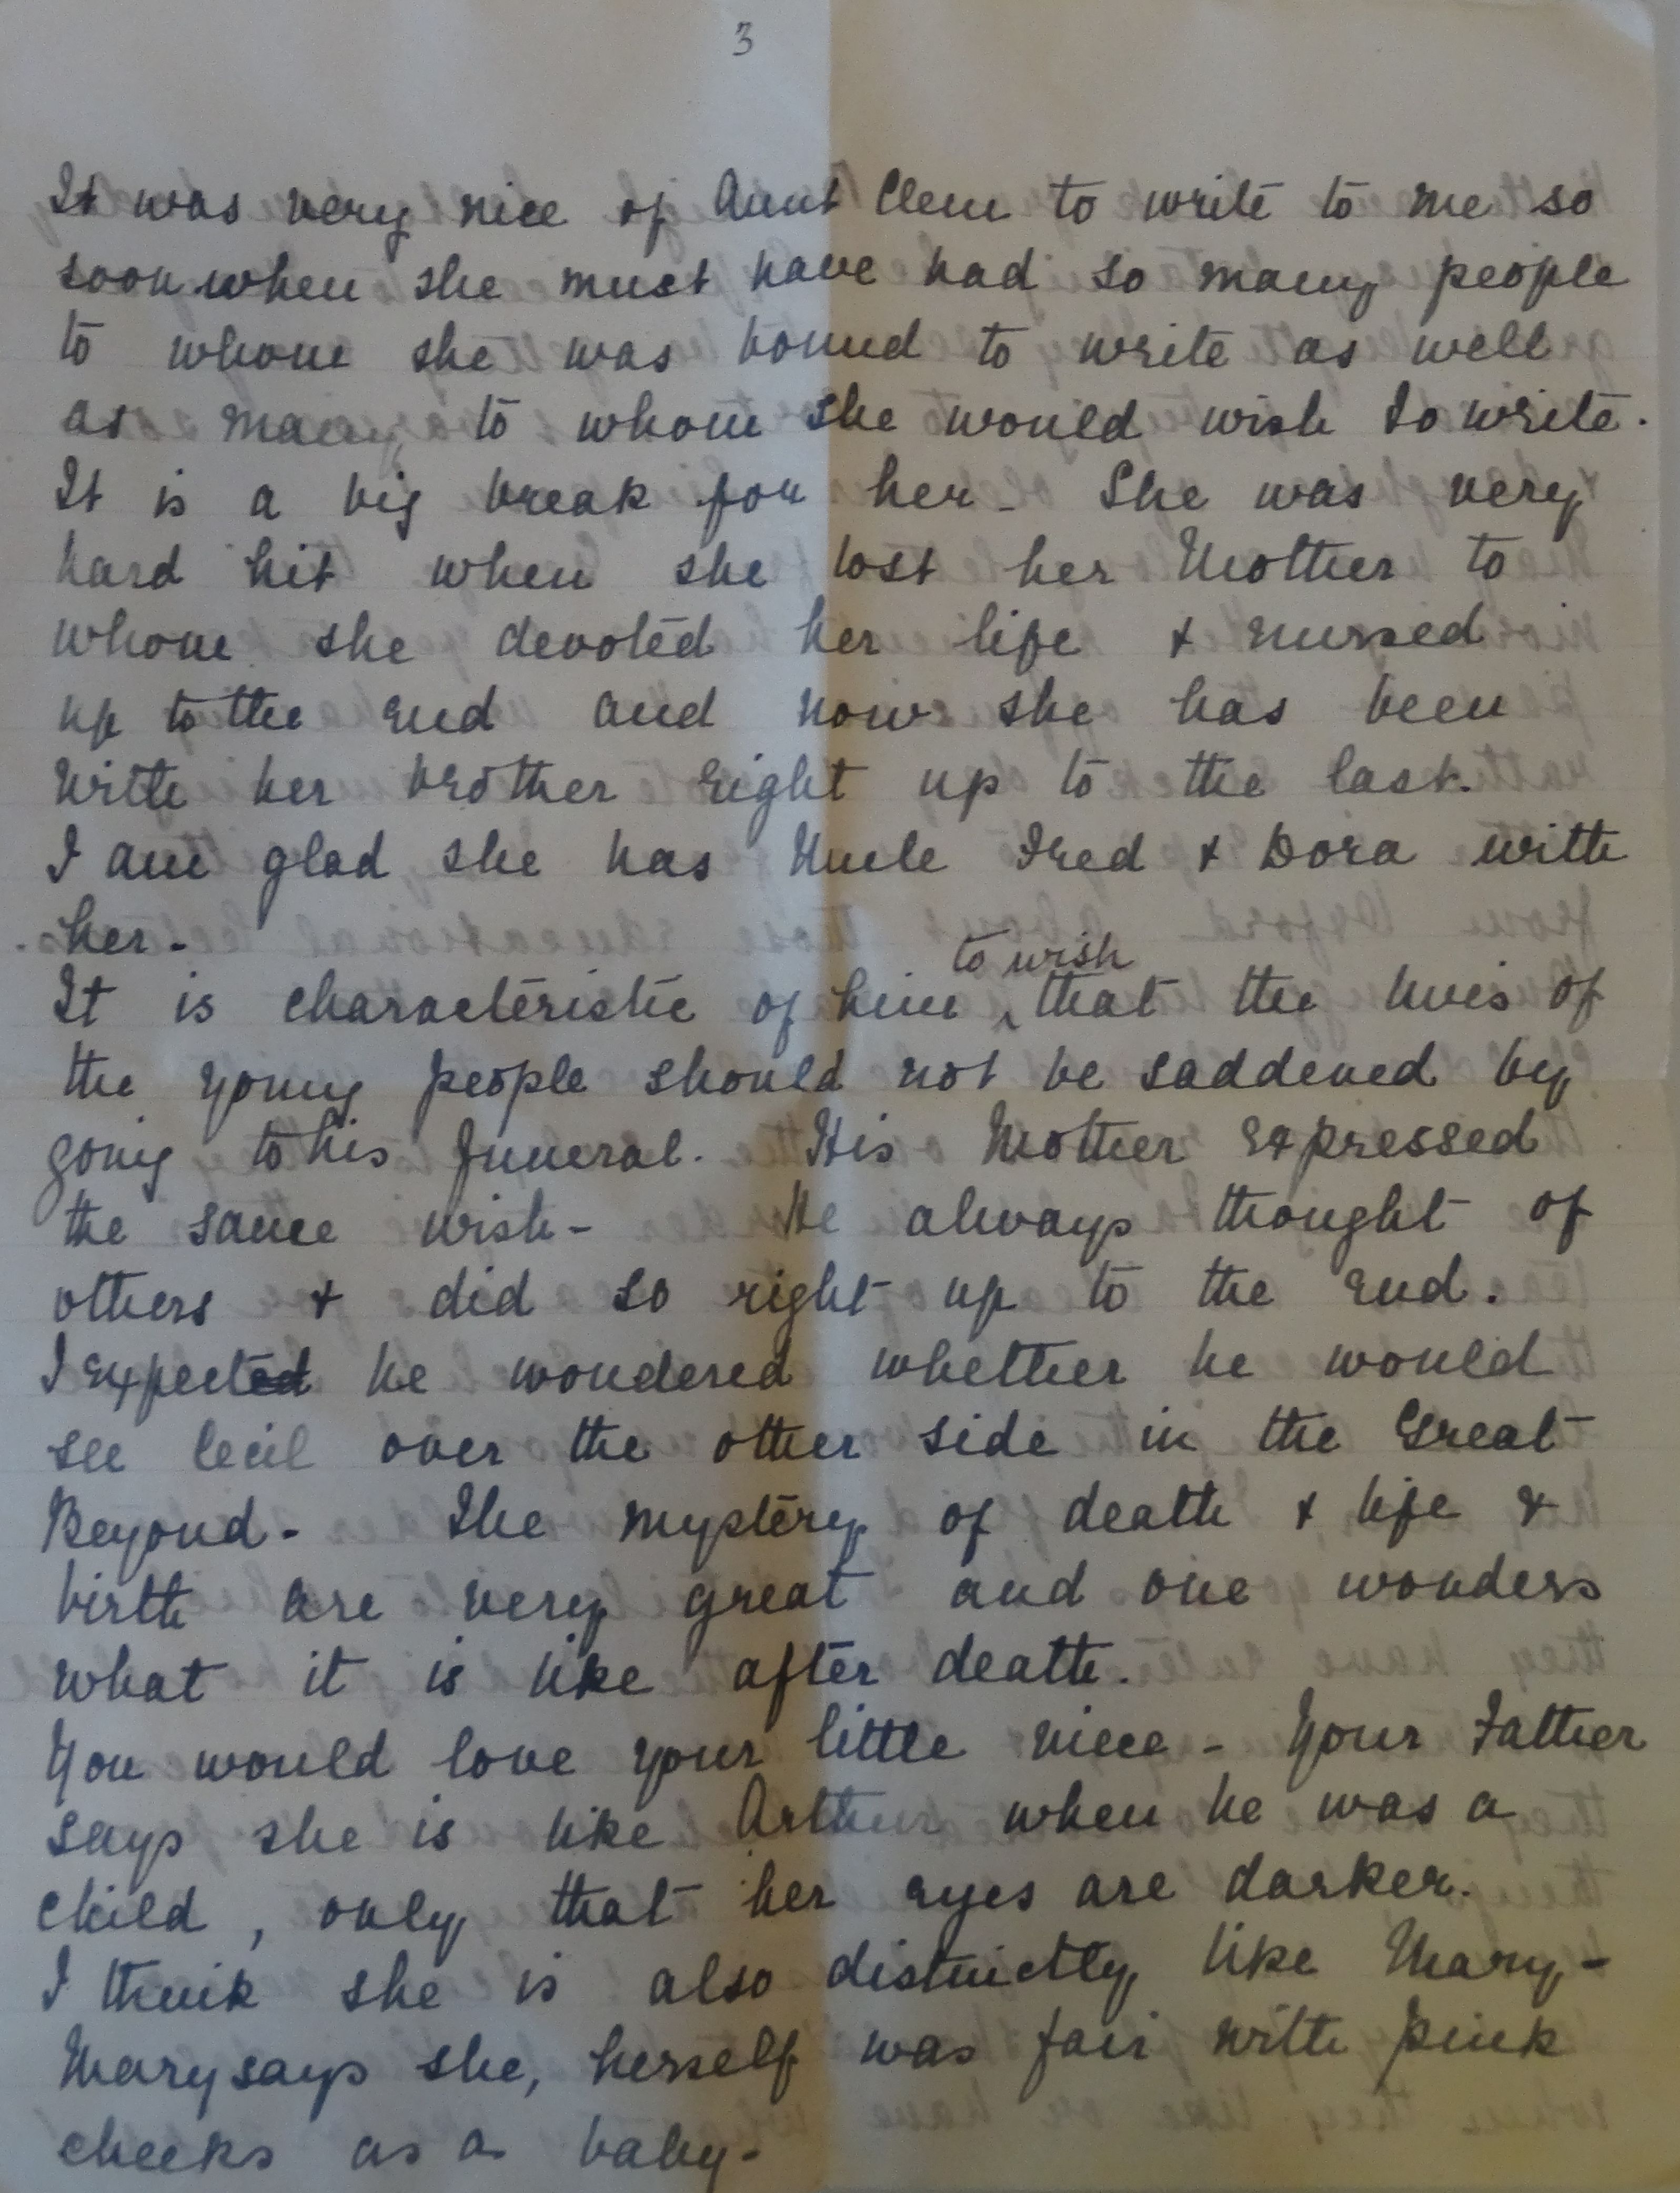 3
It was very nice of Aunt Clem to write to me so
soon when she must have had so many people
to whom she was bound to write as well
as many to whom she would wish to write.
It is a big break for her - She was very
hard hit when she lost her Mother to
whom she devoted her life & nursed
up to the end and now she has been
with her brother right up to the last.
I am glad she has Uncle Fred & Dora with
her -
to wish
It is characteristic of him ‸ that the lives of
the young people should not be saddened by
going to his funeral. His Mother expressed
the same wish - He always thought of
others & did so right up to the end.
I expected he wondered whether he would
see Cecil over the other side in the Great
Beyond - The mystery of death & life &
birth are very great and one wonders
what it is like after death.
You would love your little niece - Your Father
says she is like Arthur when he was a
child , only that her eyes are darker.
I think she is also distinctly like Mary -
Mary says she, herself was fair with pink
cheeks as a baby -